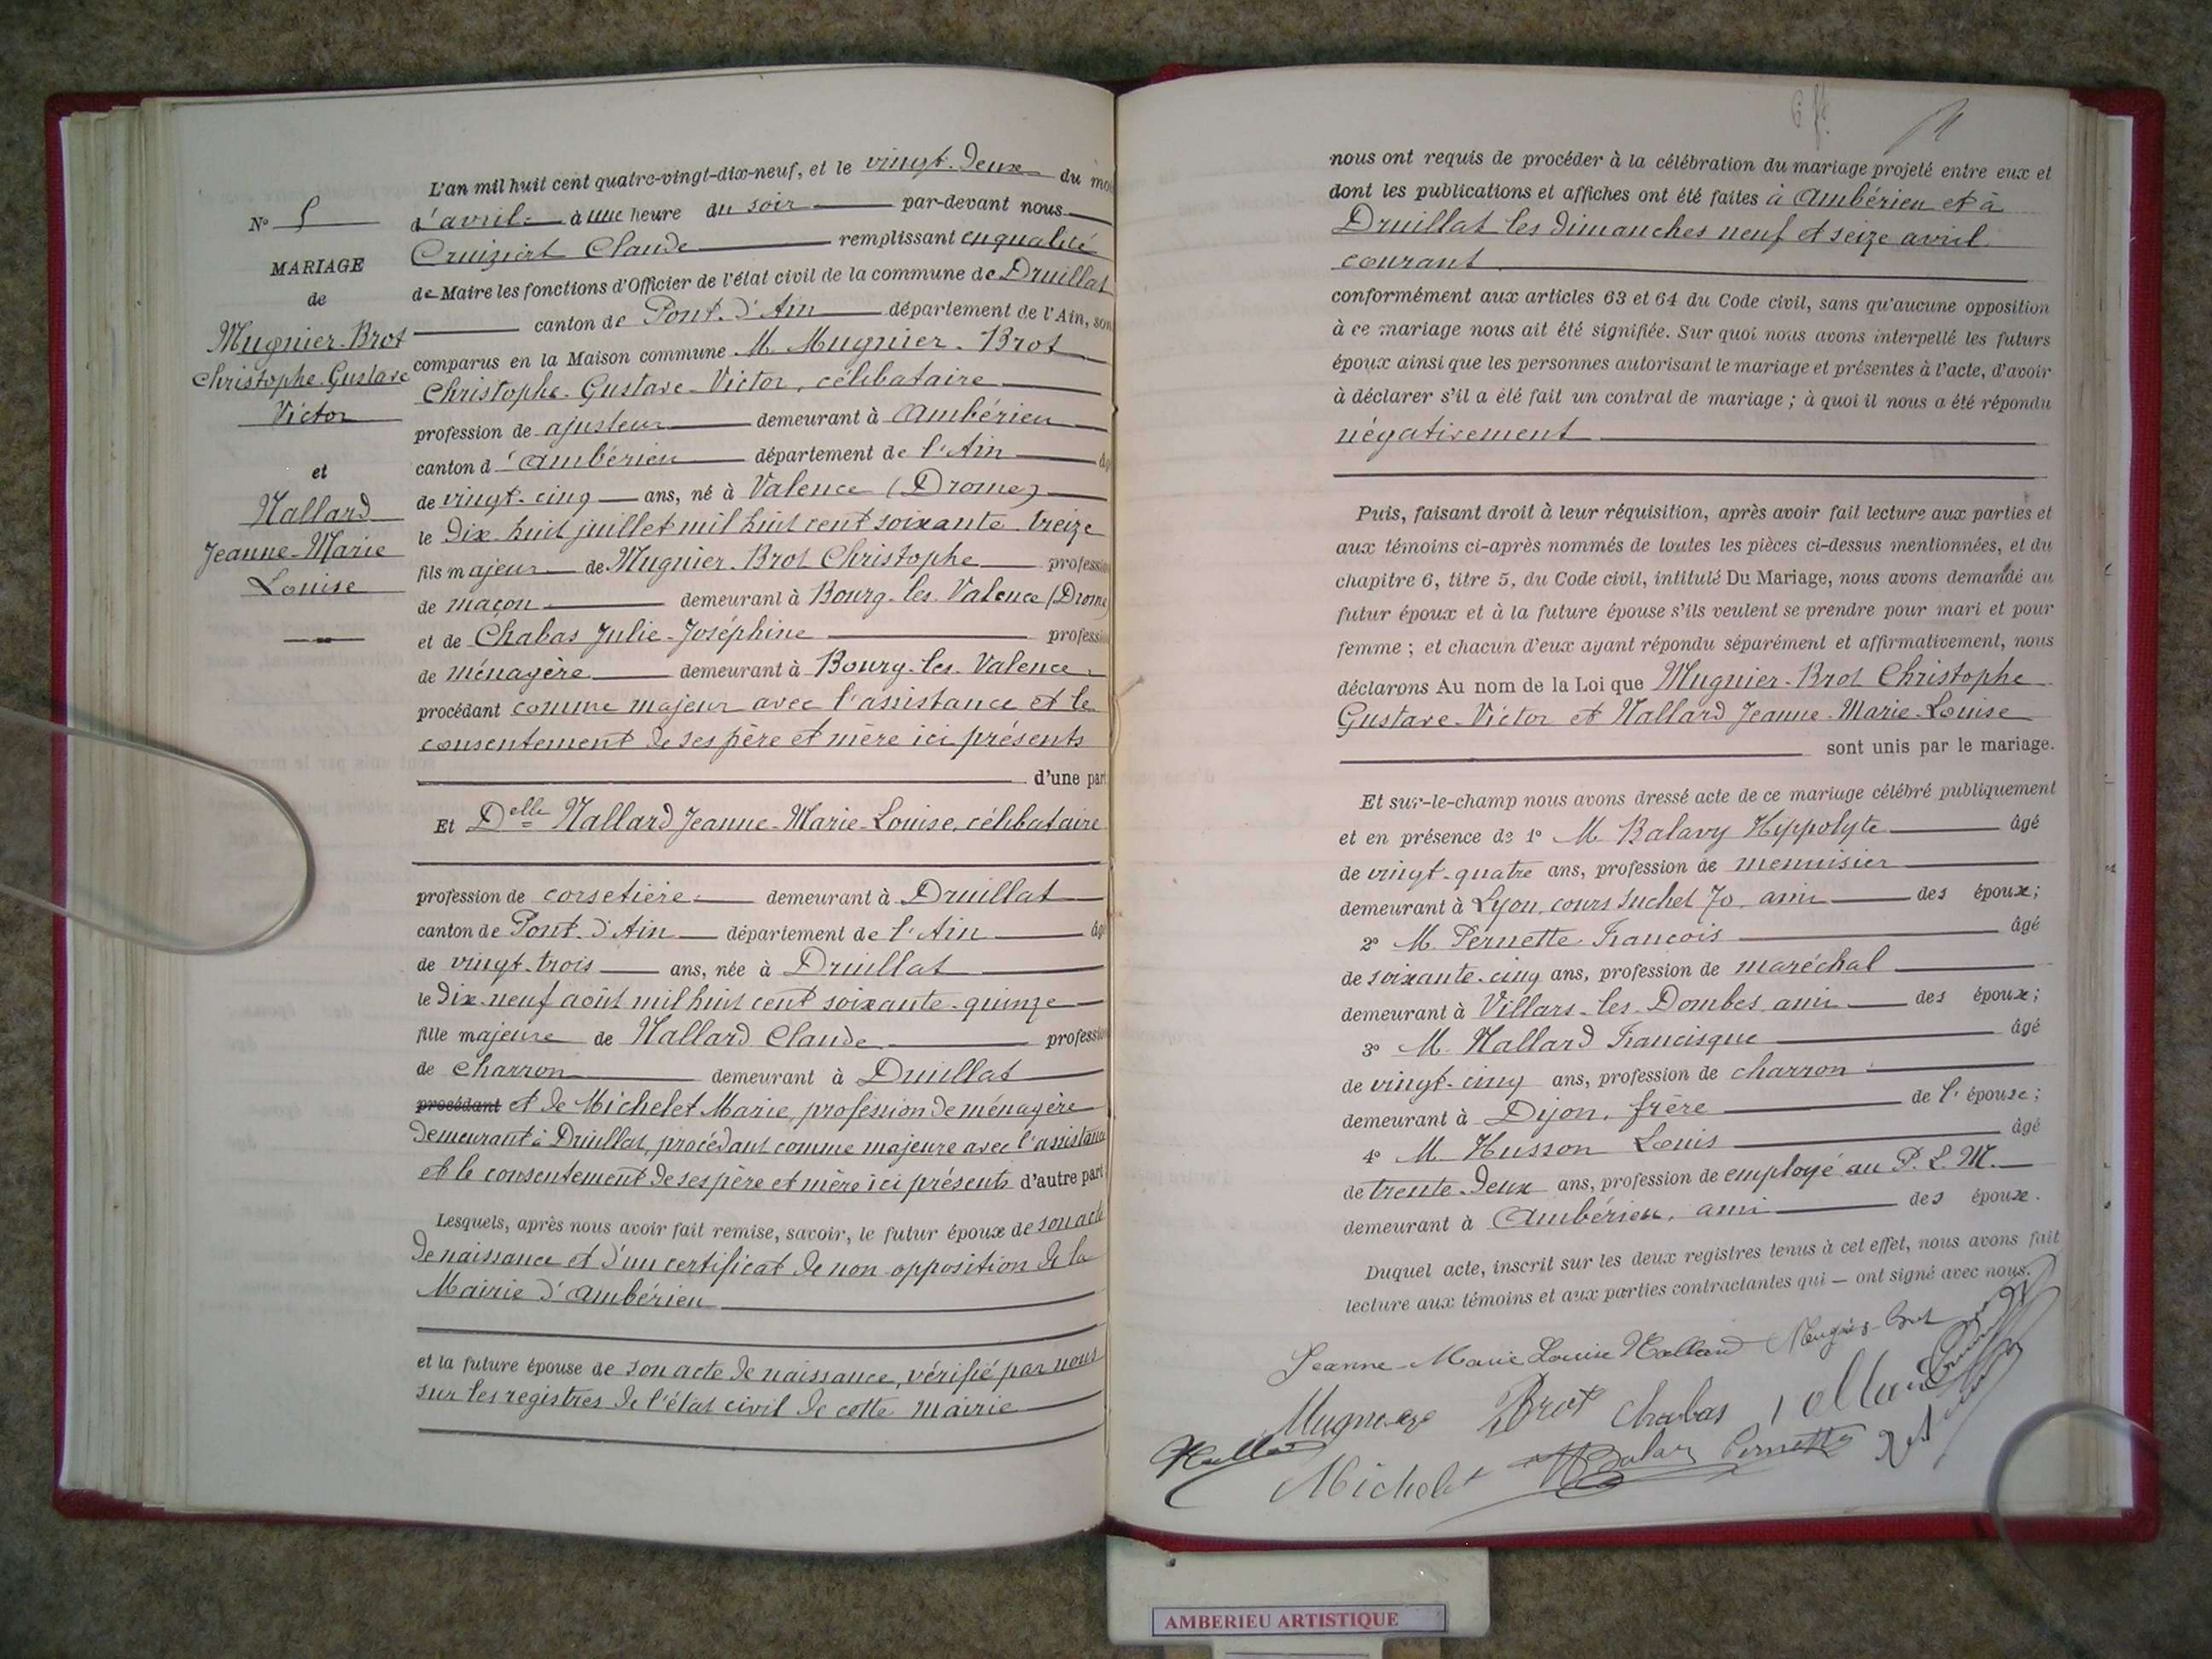 N° 5
MARIAGE
de
Mugnier-Brot
Christophe-Gustave
Victor
et
Hallard
Jeanne-Marie
Louise
L'an mil huit cent quatre-vingt-dix-neuf, et le vingt-deux du moi
d'avril à une heure du soir par-devant nous
Claude remplissant en qualité
de Maire les fonctions d'Officier de l'état civil de la commune de Druillat
canton de Pont-d'Ain département de l'Ain, son
comparus en la Maison commune M. Mugnier-Brot
Christophe-Gustave-Victor, célibataire
profession de ajusteur demeurant à Ambérieu
canton d'Ambérieu département de l'Ain âg
de vingt-cinq ans, né à Valence (Drome)
le dix-huit juillet mil huit cent soixante-treize
fils majeur de Mugnier-Brot Christophe profession
de maçon demeurant à Bourg-les-Valence (Drome
et de Chabas Julie-Joséphine profession
de ménagère demeurant à Bourg-les-Valence
procédant comme majeur avec l'assistance et le
consentement de ses père et mère ici présents
d'une part
Et Delle Hallard Jeanne-Marie-Louise, célibataire
profession de corsetière demeurant à Druillat
canton de Pont-d'Ain département de l'Ain âg
de vingt-trois ans, née à Druillat
le dix-neuf août mil huit cent soixante-quinze
fille majeure de Hallard Claude profession
de charron demeurant à Druillat
procédant et de Michelet Marie, profession de ménagère
demeurant à Druillat, procédant comme majeure avec l'assistance
et le consentement de ses père et mère ici présents d'autre part
Lesquels, après nous avoir fait remise, savoir, le futur époux de son acte
de naissance et d'un certificat de non opposition de la
Mairie d'Ambérieu
et la future épouse de son acte de naissance, vérifié par nous
sur les registres de l'état civil de cette mairie
nous ont requis de procéder à la célébration du mariage projeté entre eux et
dont les publications et affiches ont été faites à Ambérieu et à
Druillat les dimanches neuf et seize avril
courant
conformément aux articles 63 et 64 du Code civil, sans qu'aucune opposition
à ce mariage nous ait été signifiée. Sur quoi nous avons interpellé les futurs
époux ainsi que les personnes autorisant le mariage et présentes à l'acte, d'avoir
à déclarer s'il a été fait un contrat de mariage ; à quoi il nous a été répondu
négativement
Puis, faisant droit à leur réquisition, après avoir fait lecture aux parties et
aux témoins ci-après nommés de toutes les pièces ci-dessus mentionnées, et du
chapitre 6, titre 5, du Code civil, intitulé Du Mariage, nous avons demandé au
futur époux et à la future épouse s'ils veulent se prendre pour mari et pour
femme ; et chacun d'eux ayant répondu séparément et affirmativement, nous
déclarons Au nom de la Loi que Mugnier-Brot Christophe
Gustave-Victor et Hallard Jeanne-Marie-Louise
sont unis par le mariage.
Et sur-le-champ nous avons dressé acte de ce mariage célébré publiquement
et en présence de 1° M. Balavy Hippolyte âgé
de vingt-quatre ans, profession de menuisier
demeurant à Lyon, cours Suchet 70, ami des époux;
2° M. Pernette François âgé
de soixante-cinq ans, profession de maréchal
demeurant à Villars-les-Dombes, ami des époux;
3° M. Hallard Francisque âgé
de vingt-cinq ans, profession de charron
demeurant à Dijon, frère de l'épouse;
4° M. Husson Louis âgé
de trente-deux ans, profession de employé au P.L.M.
demeurant à Ambérieu, ami des époux.
Duquel acte, inscrit sur les deux registres tenus à cet effet, nous avons fait
lecture aux témoins et aux parties contractantes qui — ont signé avec nous.
Jeanne-Marie Louise Hallard Mugnier-Brot
Mugnier Brot Chabas
Michelet Balavy Pernette
AMBERIEU ARTISTIQUE